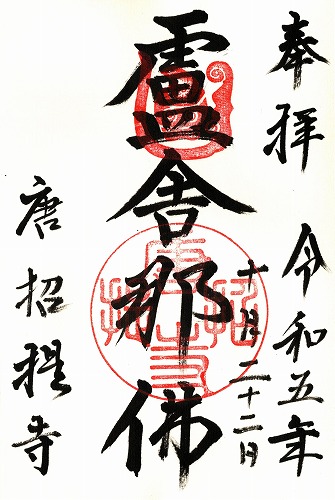 奉拝 令和五年
十月二十二日
盧舎那佛
唐招提寺